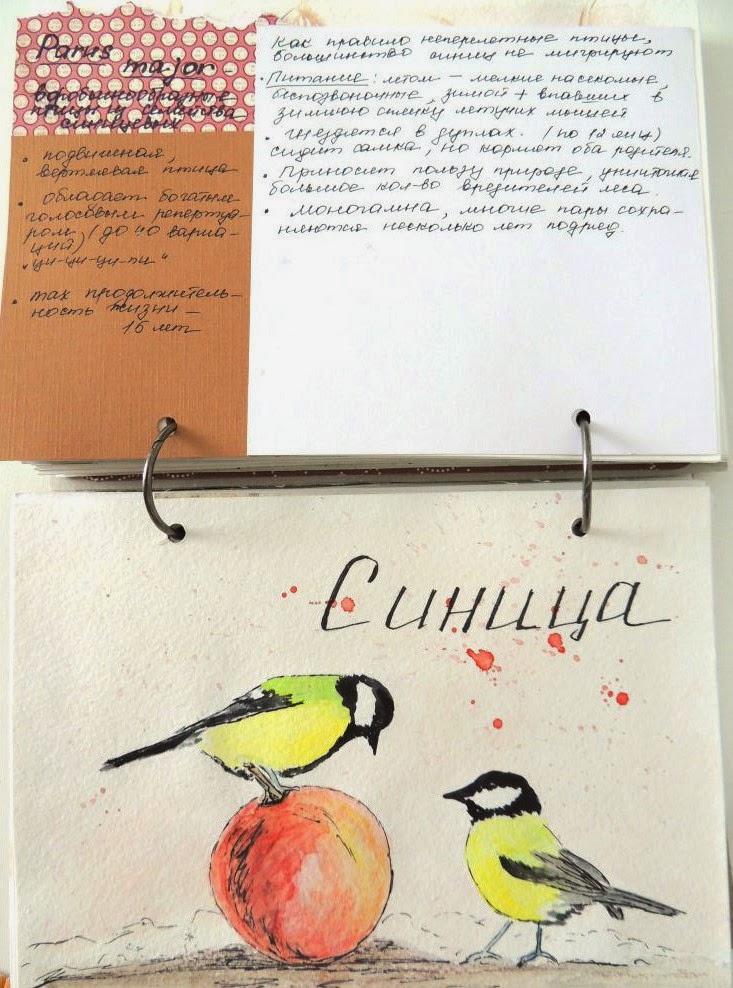 Parus major -
воробьинообразные
птицы из семейства
синицевых
• подвижная,
вертлявая птица
• обладает богатым
голосовым репертуа-
ром (до 40 вариа-
ций)
"ци-ци-ци-пи"
• max продолжитель-
ность жизни –
15 лет
Как правило неперелетные птицы,
большинство синиц не мигрируют
• Питание: летом – мелкие насекомые,
беспозвоночные, зимой + впавших в
зимнюю спячку летучих мышей
• гнездятся в дуплах. (по 12 яиц)
сидит самка, но кормят оба родителя.
• Приносит пользу природе, уничтожая
большое кол-во вредителей леса.
• Моногамна, многие пары сохра-
няются несколько лет подряд.
Синица